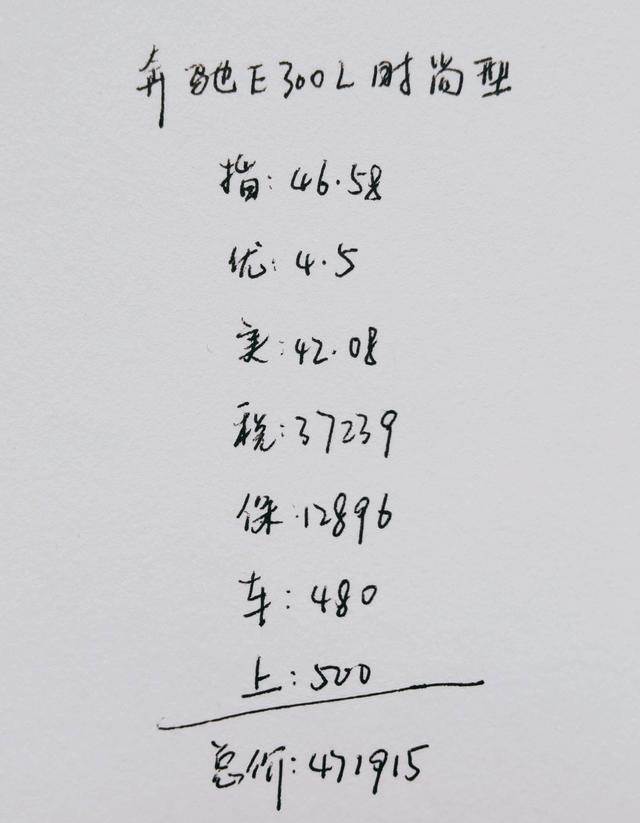 奔驰E300L时尚型
指:46.58
优:4.5
实:42.08
税:37239
保:12896
车:480
上:500
总价:471915